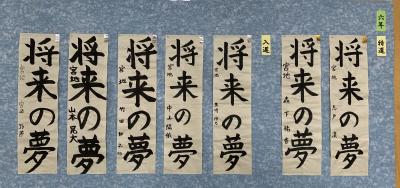 六年
特選
将来の夢
宮地
将来の夢
宮地
森下
入選
将来の夢
宮地
将来の夢
宮地
中山
将来の夢
宮地
竹田
将来の夢
宮地
山本晃大
将来の夢
宮地